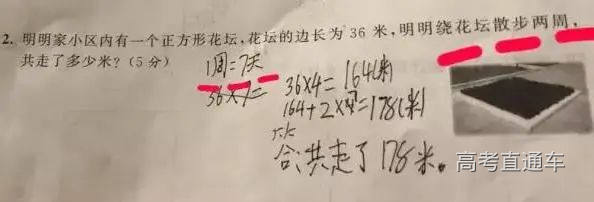 2. 明明家小区内有一个正方形花坛,花坛的边长为 36 米,明明绕花坛散步两周,
共走了多少米?(5 分)
1周=7天
36×7=
36×4=164(米)
164+2×7=178(米)
答:共走了178米。
高考直通车